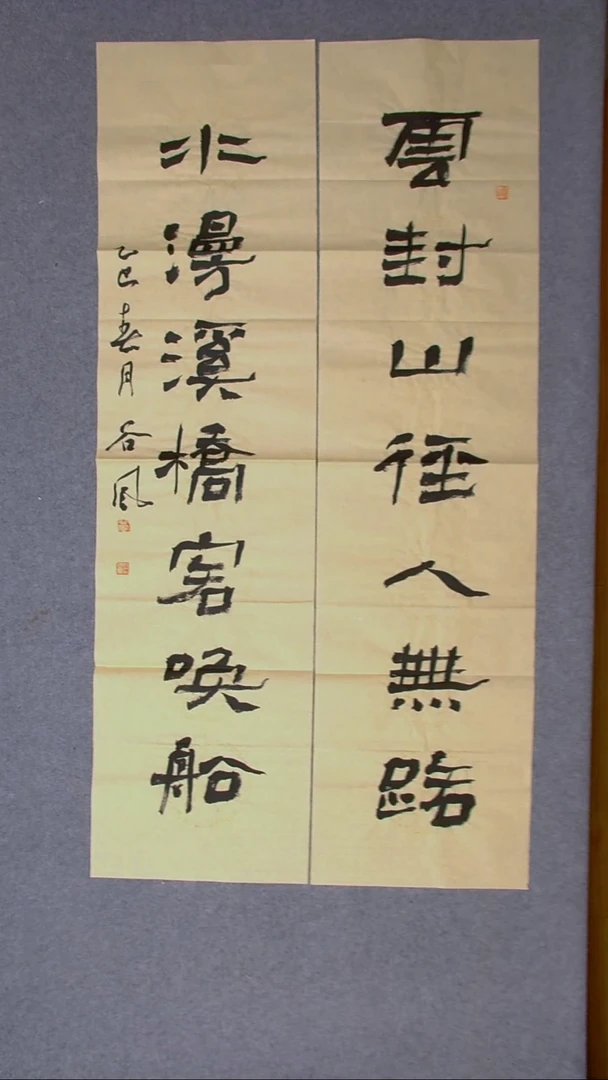 雲封山徑人無路
水漫溪橋客喚船
乙巳春月谷風